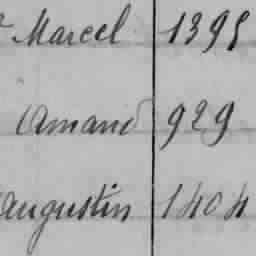 Marcel 1395
Amand 929
Augustin 1404